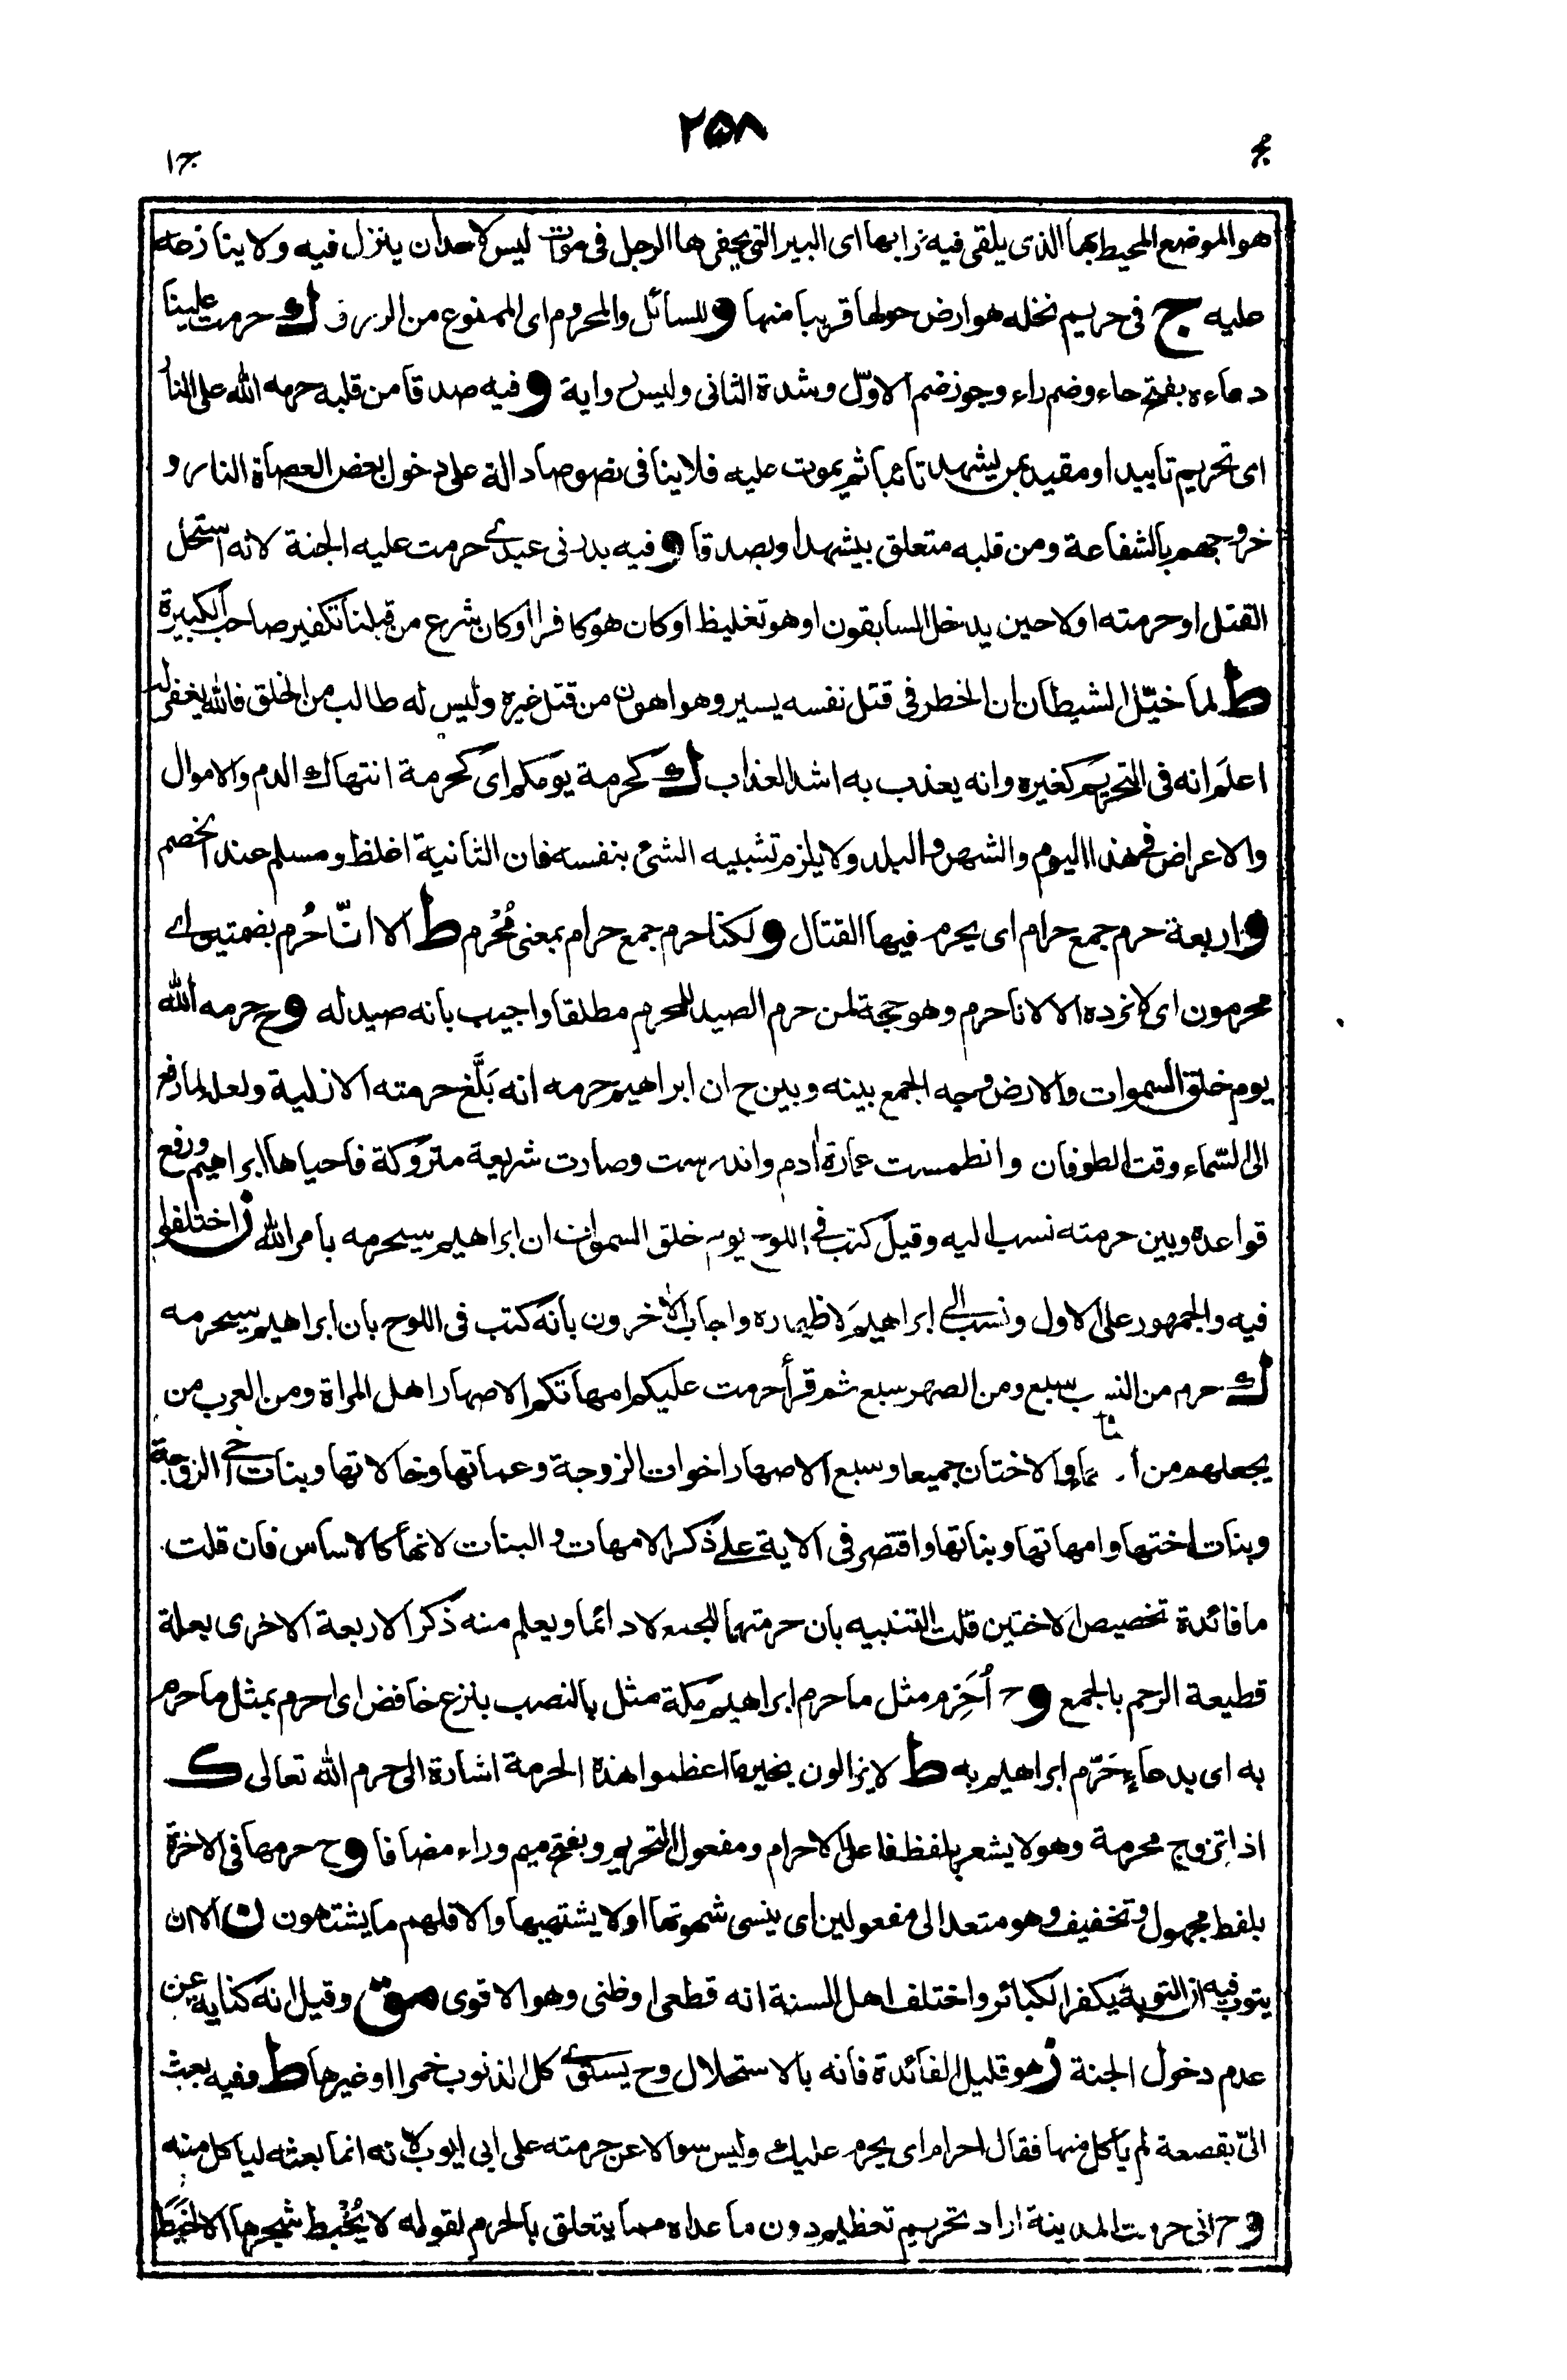 ٢٥٨
ج١
هو الموضع المحيط بها الذى يلقى فيه ترابها اى البير التى يحفرها الرجل فى موات ليس لاحد ان ينزل فيه ولا ينازعه
عليه ج فى حريم نخله هو ارض حولها قريبا منها و للسائل والمحروم اى الممنوع من الرزق ك حرمت علينا
دماءه بفتح حاء وضم راء وجوز ضم الاول وشدة الثانى وليس رواية و فيه صدقا من قلبه حرمه الله على النار
اى تحريم تابيد او مقيد بمن يشهد تائبا ثم يموت عليه فلا ينافى نصوصا دالة على دخول بعض العصاة النار و
خروجهم بالشفاعة ومن قلبه متعلق بيشهد او بصدقا و فيه بدرنى عبدى حرمت عليه الجنة لانه استحل
القتل او حرمته اولا حين يدخل السابقون او هو تغليظ او كان هو كافرا او كان شرع من قبلنا تكفير صاحب الكبيرة
ط لما خيّل الشيطان ان الخطر فى قتل نفسه يسير وهو اهون من قتل غيره وليس له طالب من الخلق فالله يغفر له
اعلم انه فى التحريم كغيره وانه يعذب به اشد العذاب ك كحرمة يومكم اى كحرمة انتهاك الدم والاموال
والاعراض فى هذا اليوم والشهر والبلد ولا يلزم تشبيه الشئ بنفسه فان الثانية اغلظ ومسلم عند الخصم
و اربعة حرم جمع حرام اى يحرم فيها القتال و لكنا حرم جمع حرام بمعنى مُحْرم ط الا انّا حُرم بضمتين اے
محرمون اى لا نرده الا لانا حرم وهو حجة لمن حرم الصيد للمحرم مطلقا واجيب بانه صيد له و ح حرمه الله
يوم خلق السموات والارض وجه الجمع بينه وبين ح ان ابراهيم حرمه انه بَلَّغ حرمته الازلية ولعله لما رفع
الى السّماء وقت الطوفان وانطمست عمارة ادم واندرست وصارت شريعة متروكة فاحياها ابراهيم ورفع
قواعده وبين حرمته نسب اليه وقيل كتب فى اللوح يوم خلق السموات ان ابراهيم سيحرمه بامر الله ن اختلفوا
فيه والجمهور على الاول ونسب الى ابراهيم لاظهاره واجاب الاخرون بانه كتب فى اللوح بان ابراهيم سيحرمه
ك حرم من النسب سبع ومن الصهر سبع ثم قرأ حرمت عليكم امهاتكم الاصهار اهل المراة ومن العرب من
يجعلهم من والاختان جميعا وسبع الاصهار اخوات الزوجة وعماتها وخالاتها وبنات اخى الزوجة
وبنات اختها وامهاتها وبناتها واقتصر فى الاية على ذكر الامهات والبنات لانها كالاساس فان قلت
ما فائدة تخصيص الاختين قلت التنبيه بان حرمتهما للجمع لا دائما ويعلم منه ذكر الاربعة الاخرى بعلة
قطيعة الرحم بالجمع و ح اُحَرِّم مثل ما حرم ابراهيم مكة مثل بالنصب بنزع خافض اى احرم بمثل ما حرم
به اى بدعاءٍ حَرّم ابراهيم به ط لا يزالون بخير ما اعظموا هذه الحرمة اشارة الى حرم الله تعالى ك
اذا تزوج محرمة وهو لا يشعر بلفظ فاعل الاحرام ومفعول التحريم وبفتح ميم وراء مضافا و ح حرمها فى الاخرة
بلفظ مجهول وتخفيف وهو متعد الى مفعولين اى ينسى شهوتها او لا يشتهيها والا فلهم ما يشتهون ن الا ان
يتوب فيه ان التوبة يكفر الكبائر واختلف اهل السنة انه قطعى او ظنى وهو الاقوى مق وقيل انه كناية عن
عدم دخول الجنة ز هو قليل الفائدة فانه بالاستحلال وح يستوى كل الذنوب خمرا او غيرها ط وفيه بعث
الىّ بقصعة لم ياكل منها فقال احرام اى يحرم عليك وليس سوالا عن حرمته على ابى ايوب لانه انما بعثه لياكل منه
و ح انى حرمت المدينة اراد تحريم تعظيم دون ما عداه مما يتعلق بالحرم لقوله لا يُخْبط شجرها الا لخَبَط